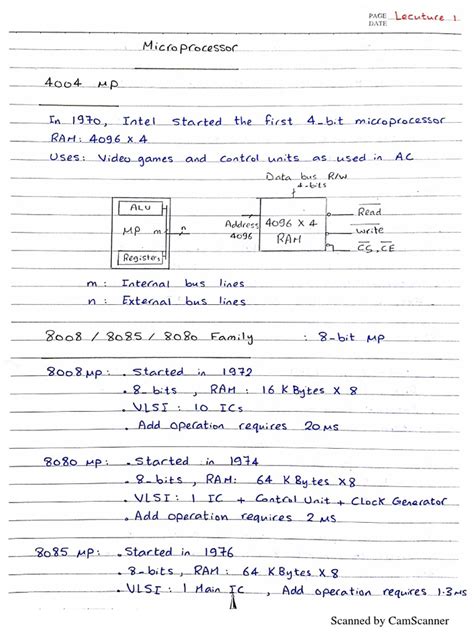 PAGE Lecuture 1
DATE
Microprocessor
4004 MP
In 1970, Intel started the first 4-bit microprocessor
RAM: 4096 x 4
Uses: Video games and control units as used in AC
Data bus R/W
4-bits
ALU
MP m n
Registers
Address
4096
4096 x 4
RAM
Read
write
CS, CE
m : Internal bus lines
n : External bus lines
8008 / 8085 / 8080 Family : 8-bit MP
8008 MP: . Started in 1972
. 8-bits , RAM : 16 K Bytes x 8
. VLSI : 10 ICs
. Add operation requires 20 MS
8080 MP: . Started in 1974
. 8-bits, RAM: 64 K Bytes x 8
. VLSI : 1 IC + Control Unit + Clock Generator
. Add operation requires 2 MS
8085 MP: . Started in 1976
. 8-bits, RAM : 64 K Bytes x 8
. VLSI : 1 Main IC , Add operation requires 1.3 MS
Scanned by CamScanner